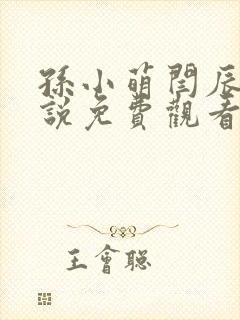 孫小萌閆辰
說免費觀看
王會聰